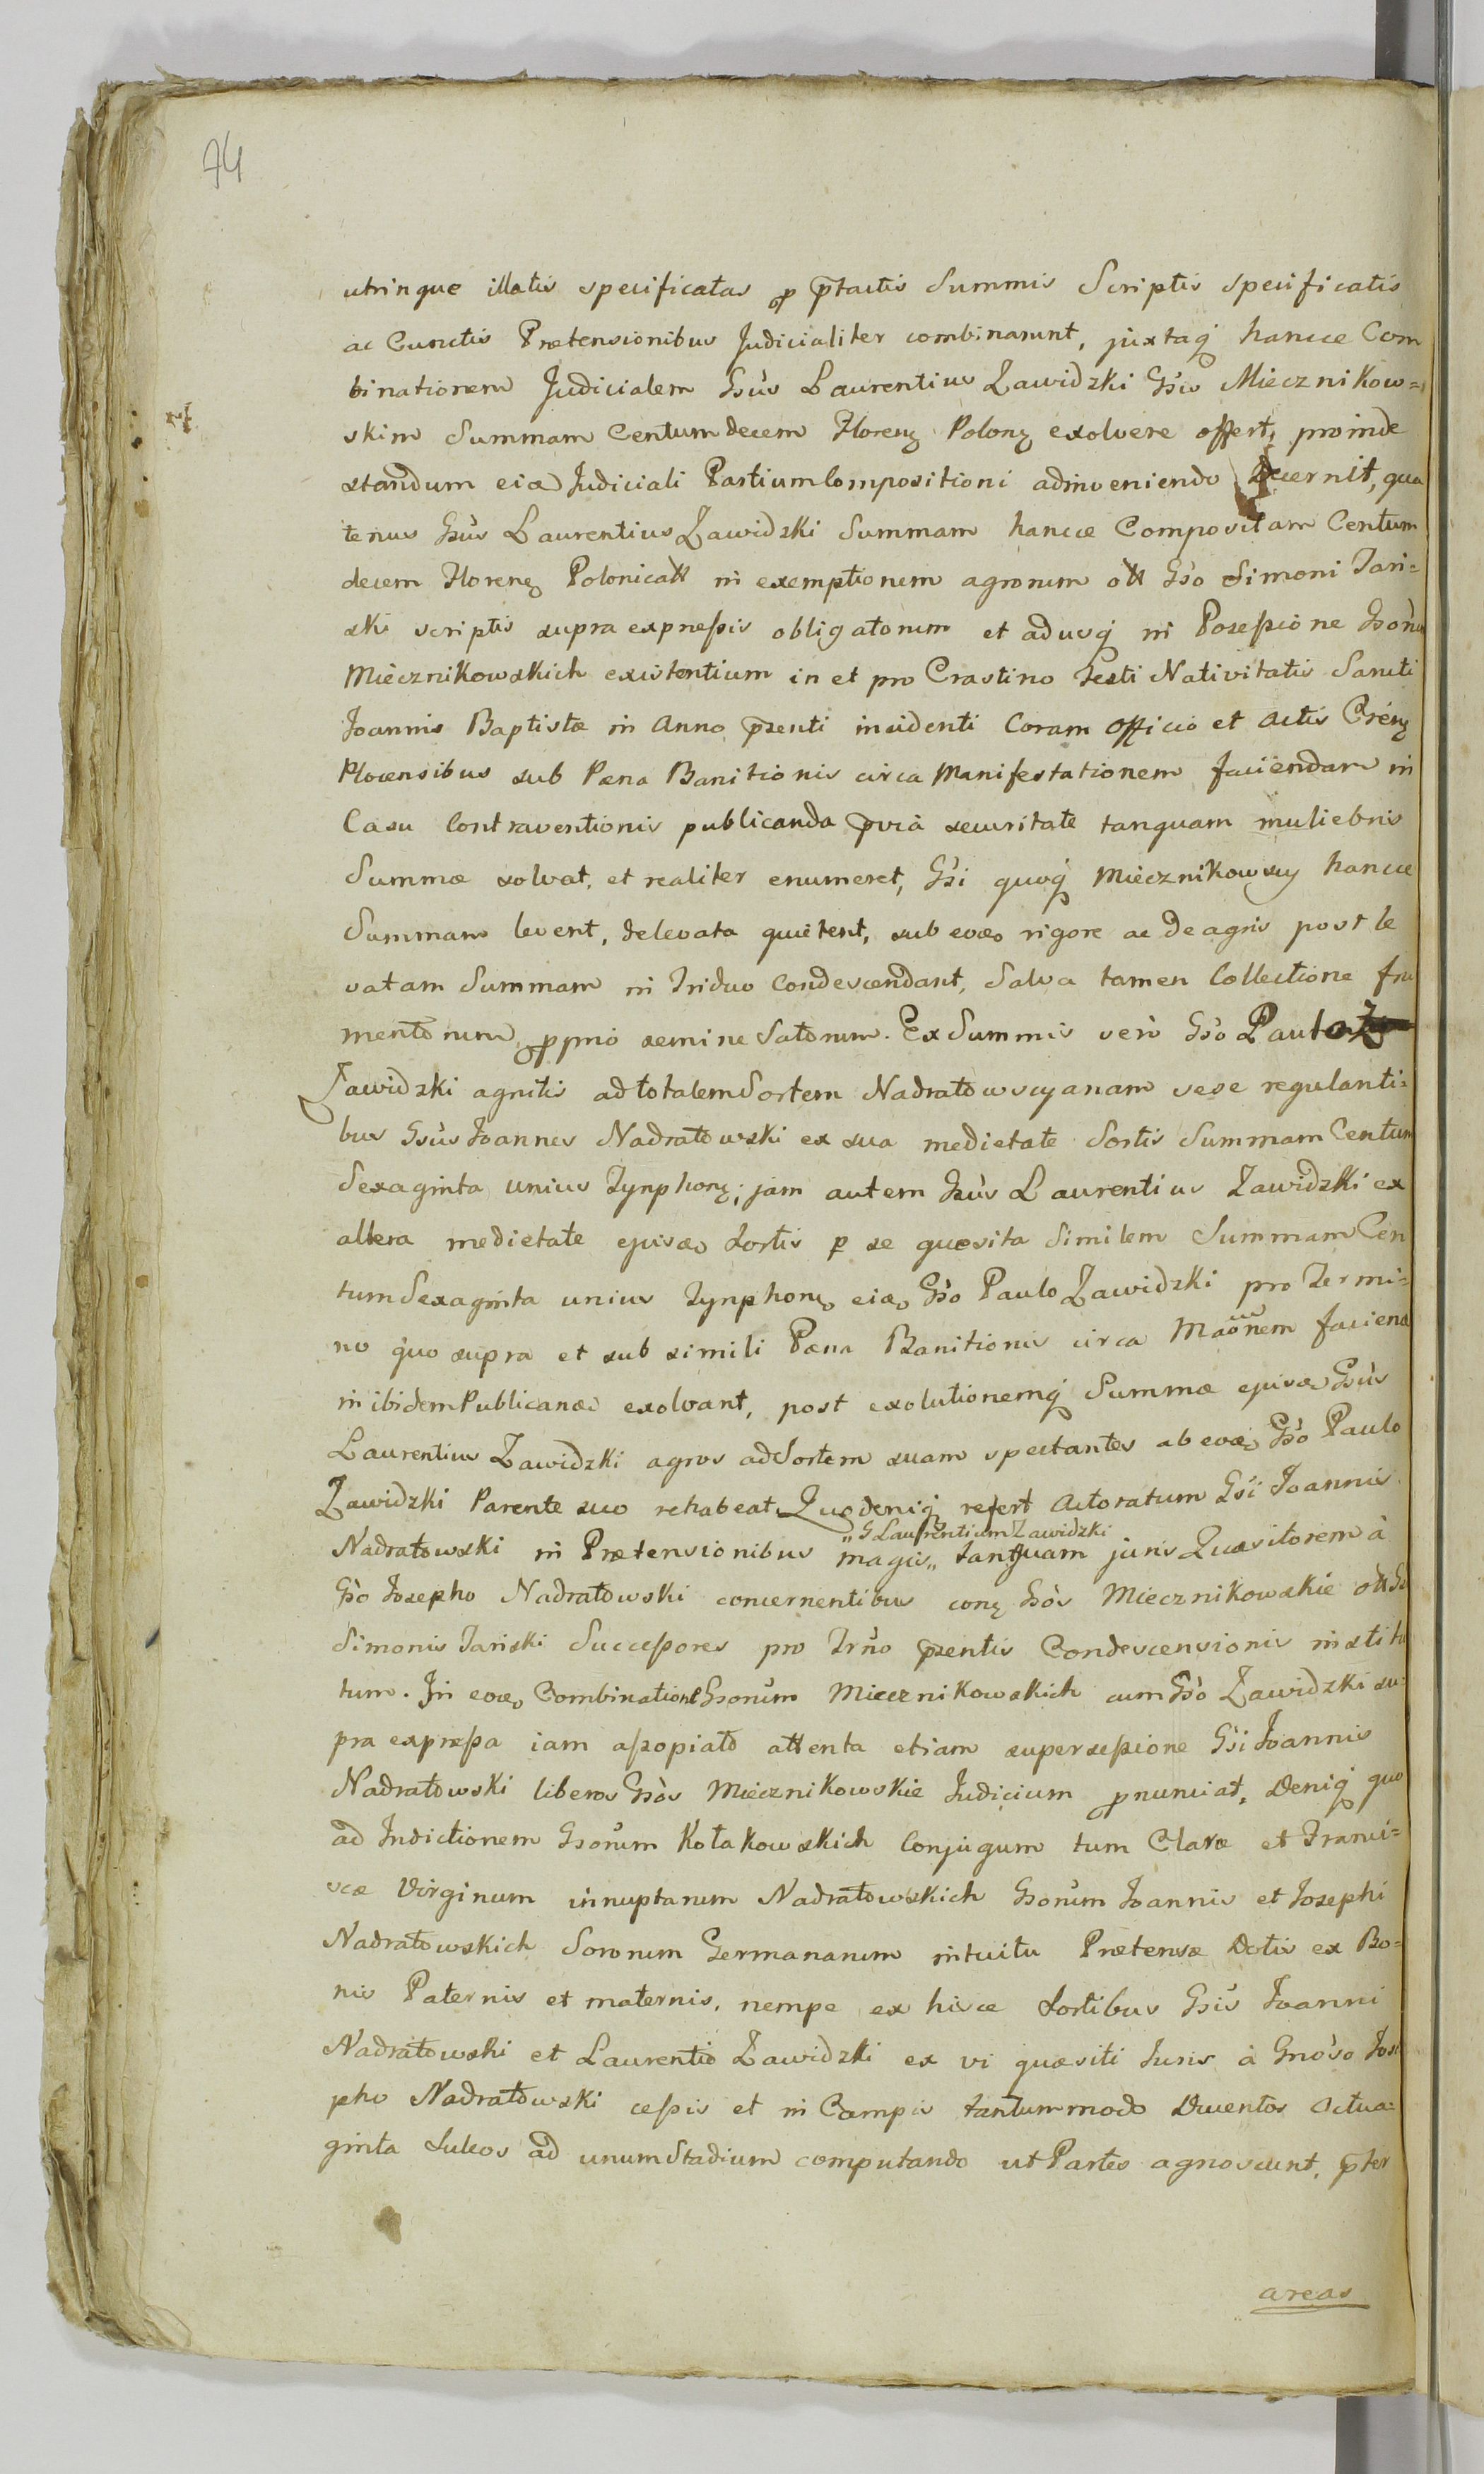 74
utrinque illatis specificatas p ptactis Summis Scriptis specificatis
ac Cunctis Prætensionibus Judicialiter combinarunt, juxtaq hancce Com
binationem Judicialem Gsus Laurentius Zawidzki Gsis Miecznikow=
skim Summam Centum decem Floren Polon exolvere offert, proinde
standum eid Judiciali Partium Compositioni adinveniendo Decernit, qua
tenus Gsus Laurentius Zawidzki Summam hancce Compositam Centum
decem Floren Polonicatt in exemptionem agrorum ott Gso Simoni Jari=
ski scriptis supra expressis obligatorum et adusq in Possessione Gsonum
Miecznikowskich existentium in et pro Crastino Festi Nativitatis Sancti
Joannis Baptistæ in Anno psenti incidenti Coram Officio et Actis
Plocensibus sub Pæna Banitionis circa Manifestationem faciendam in
Casu Contraventionis publicanda pvia securitate tanquam muliebris
Summæ solvat, et realiter enumeret, Gsi quoq Miecznikowscy hancce
Summam levent, de levata quietent, sub eod rigore ac de agris post le
vatam Summam in Triduo Condescendant, Salva tamen Collectione fru
mentorum pprio semine Satorum. Ex Summis verò Gso Paulo
Zawidzki agnitis ad totalem Sortem Nadratowscyanam sese regulanti=
bus Gsus Joannes Nadratowski ex sua medietate Sortis Summam Centum
Sexaginta unius Tynphon; jam autem Gsus Laurentius Zawidzki ex
altera medietate ejusd Sortis p se quæsita Similem Summam Cen
tum Sexaginta unius Tynphon eid Gso Paulo Zawidzki pro Termi=
no quo supra et sub simili Pæna Banitionis circa Maonem faciend
inibidem Publicand exolvant, post exolutionemq Summæ ejusd Gsus
Laurentius Zawidzki agros ad Sortem suam spectantes ab eod Gso Paulo
Zawidzki Parente suo rehabeat. Quodeniq refert Actoratum Gsi Joannis
„G Laurentium Zawidzki
Nadratowski in Prætensionibus magis„ tanquam juris Quæsitorem à
Gso Josepho Nadratowski concernentibus con Gsos Miecznikowskie ott Gsi
Simonis Jariski Successores pro Trno psentis Condescensionis institu
tum. In eod Combinatione Gsonum Miecznikowskich cum Gso Zawidzki su=
pra expressa iam assopiato attenta etiam supersessione Gsi Joannis
Nadratowski liberos Gsos Miecznikowskie Judicium pnunciat, Deniq quo
ad Indictionem Gsonum Kołakowskich Conjugum tum Claræ et Franci=
scæ Virginum innuptarum Nadratowskich Gsonum Joannis et Josephi
Nadratowskich Sororum Germanarum intuitu Prætensæ Dotis ex Bo=
nis Paternis et maternis, nempe ex hisce Sortibus Gsis Joanni
Nadratowski et Laurentio Zawidzki ex vi quæsiti Juris à Gnoso Jose
pho Nadratowski cessis et in Campis tantummodo Ducentos Octua=
ginta Sulcos ad unum Stadium computando ut Partes agnoscunt, pter
areas